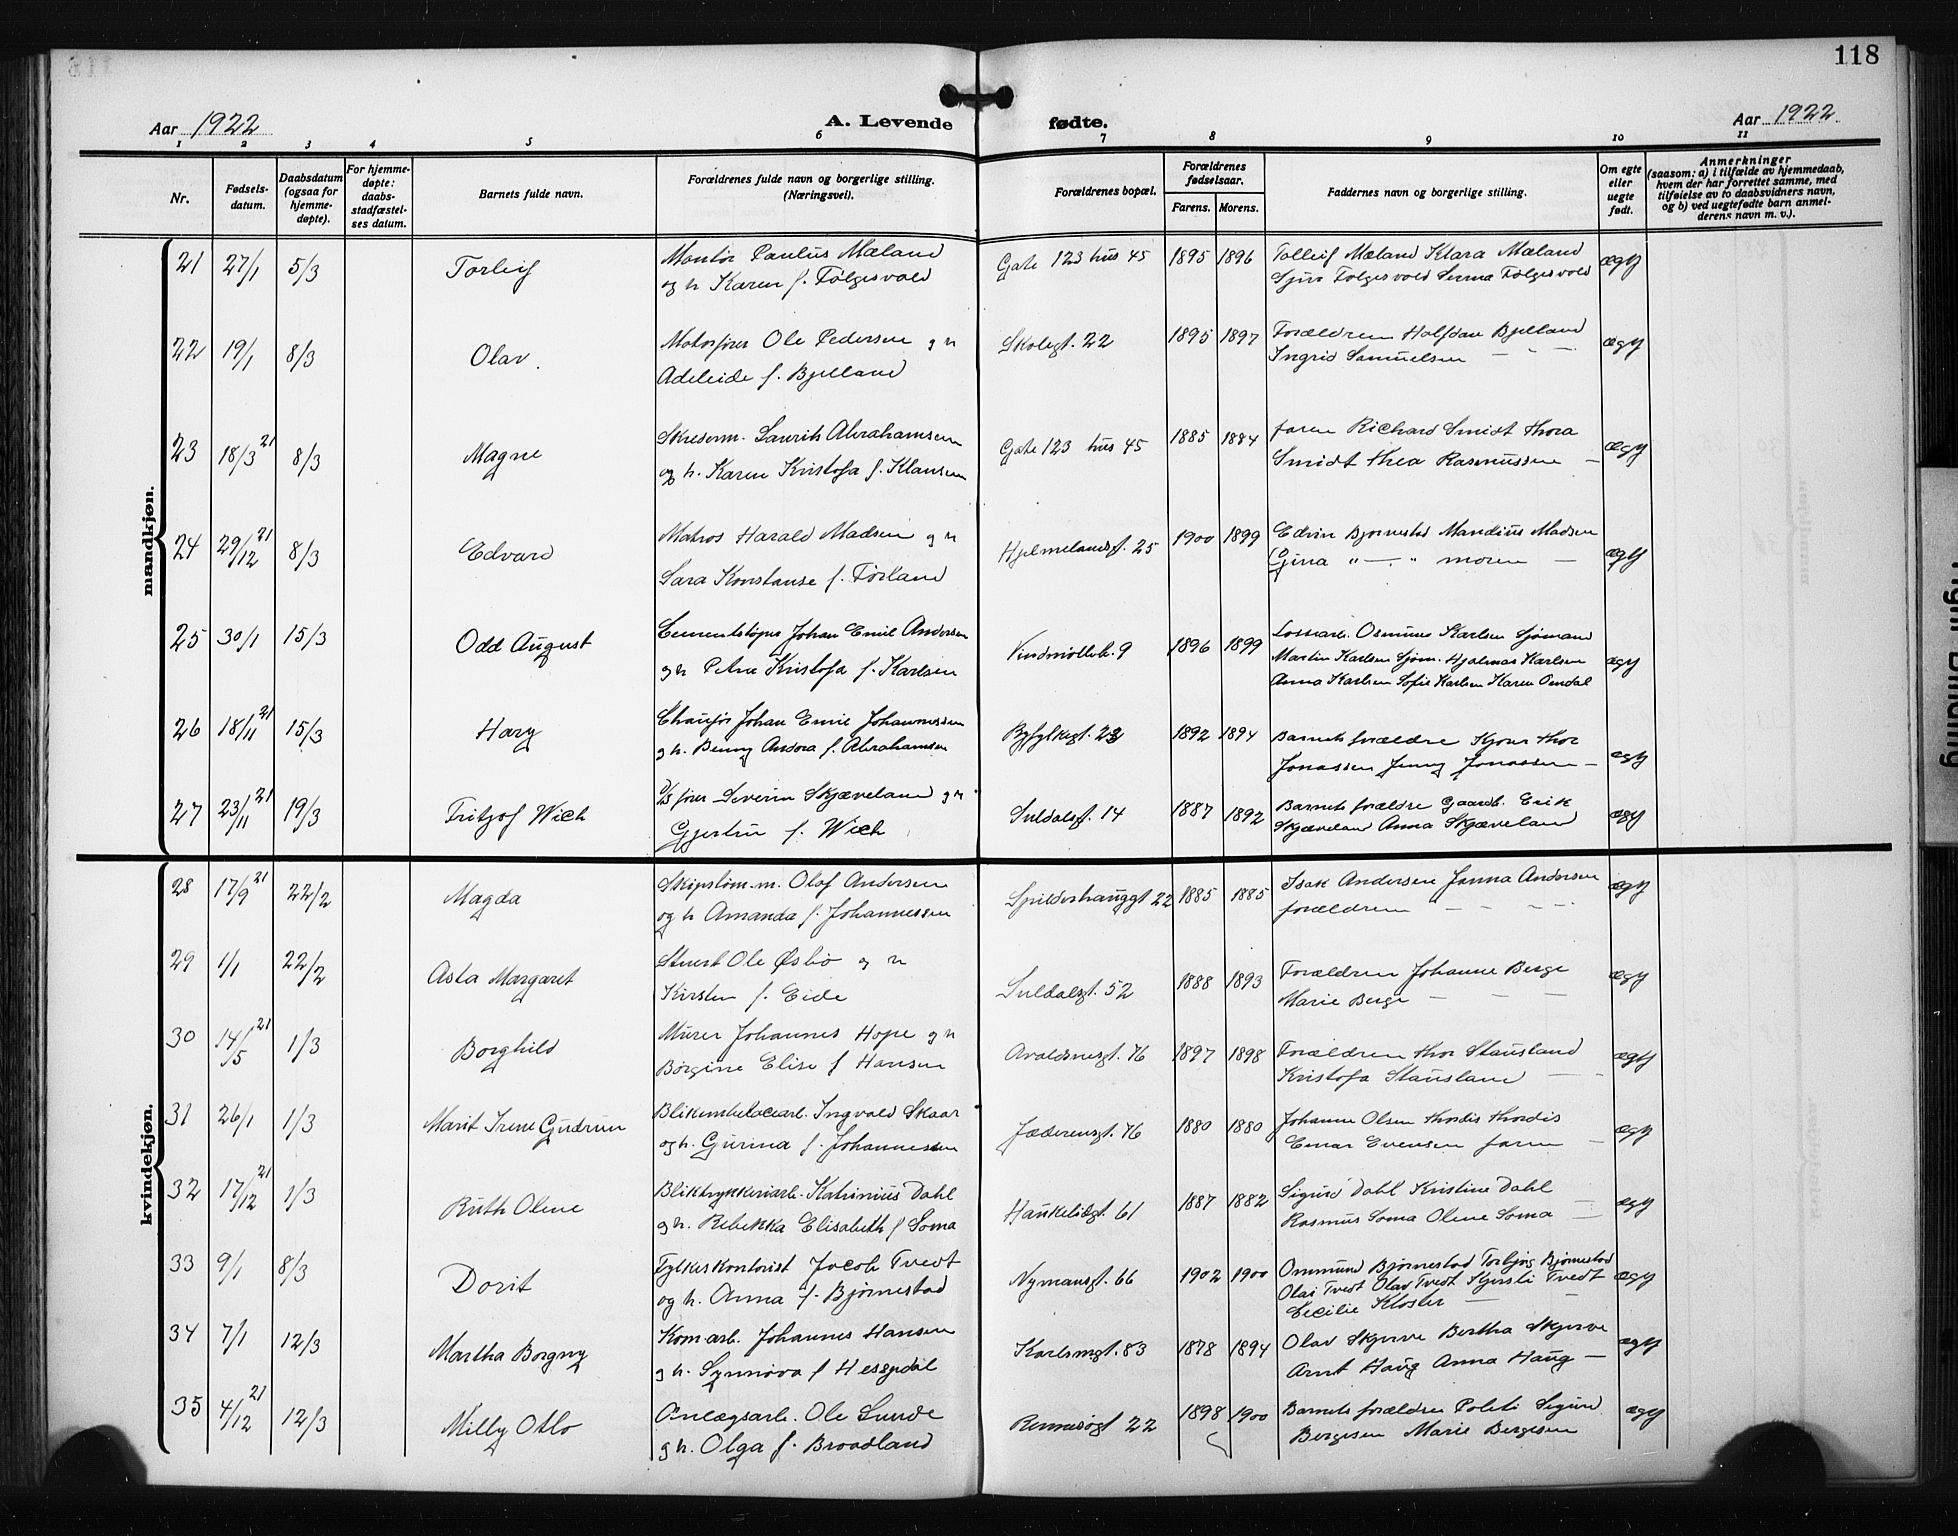 118
Aar 1922
A. Levende fødte.
Aar 1922
1 2 3 4 5 6 7 8 9 10 11
Nr.
Fødsels-
datum.
Daabsdatum
(ogsaa for
hjemme-
døpte).
For hjemme-
døpte:
daabs-
stadfæstel-
ses datum.
Barnets fulde navn.
Forældrenes fulde navn og borgerlige stilling.
(Næringsvei).
Forældrenes bopæl.
Forældrenes
fødselsaar.
Farens. Morens.
Faddernes navn og borgerlige stilling.
Om egte
eller
uegte
født.
Anmerkninger
(saasom: a) i tilfælde av hjemmedaab,
hvem der har forrettet samme, med
tilføielse av to daabsvidners navn,
og b) ved uegtefødte barn anmel-
derens navn m. v.).
mandkjøn.
21 27/1 5/3 Torleif
Montør Paulus Mæland
og h Karen f. Følgesvold
Gate 123 hus 45 1895 1896
Tolleif Mæland Klara Mæland
Sjur Følgesvold Serina Følgesvold
ægt
22 19/1 8/3 Olav.
Motorfører Ole Pedersen og h
Adeleide f. Bjelland
Skolegt. 22 1895 1897
Forældren Halfdan Bjelland
Ingrid Samuelsen — " —
ægt
23 18/3 21 8/3 Magne
Skræderm. Laurits Abrahamsen
og h. Karen Kristofa f. Klausen
Gate 123 hus 45 1885 1884
faren Richard Smidt Thora
Smidt Thea Rasmussen —
ægt
24 29/12 21 8/3 Edvard
Matros Harald Madsen og h
Sara Konstanse f. Førland
Hjelmelandsgt. 25 1900 1899
Edvin Bjørnestad Mandius Madsen
Gina " — " moren —
ægt
25 30/1 15/3 Odd August
Cementstøper Johan Emil Andersen
og h Petra Kristofa f. Karlsen
Vindmølleb. 9 1896 1899
Lossearb. Osmund Karlsen Sjømand
Martin Karlsen Sjøm. Hjalmar Karlsen
Anna Karlsen Sofie Karlsen Karen Omdal
ægt
26 18/11 21 15/3 Harg
Chaufør Johan Emil Johannessen
og h. Benny Andora f. Abrahamsen
Ryfylkegt. 23 1892 1894
Barnets forældre Kjøur Thor
Jonassen Jenny Jonassen —
ægt
27 23/11 21 19/3 Fritzof Wich
D/S fører Severin Skjæveland og h
Gjertru f. Wich
Suldalsgt. 14 1887 1892
Barnets forældre Gaardb. Erik
Skjæveland Anna Skjæveland
ægt
kvindekjøn.
28 17/9 21 22/2 Magda
Skipstøm.m. Olaf Andersen
og h Amanda f. Johannessen
Spilderhauggt 22 1885 1885
Isak Andersen Janna Andersen
forældren — — — —
ægt
29 1/1 22/2 Asta Margaret
Stuert Ole Østbø og h
Kirsten f. Eide
Suldalsgt. 52 1888 1893
Forældren Johanne Berge
Marie Berge — — —
ægt
30 14/5 21 1/3 Borghild
Murer Johannes Hope og h
Børgine Elise f Hansen
Avaldsnesgt. 76 1897 1898
Forældren Thor Stausland
Kristofa Stausland — —
ægt
31 26/1 1/3 Marit Irene Gudrun
Blikemballagearb. Ingvald Skaar
og h. Gurina f. Johannessen
Jæderensgt. 76 1880 1880
Johanne Olsen Thordis Thordis
Einar Evensen faren —
ægt
32 17/12 21 1/3 Ruth Olene
Bliktrykkeriarb. Katrinius Dahl
og h. Rebekka Elisabeth f Soma
Haukeligt 61 1887 1882
Sigurd Dahl Kristine Dahl
Rasmus Soma Olene Soma —
ægt
33 9/1 8/3 Dorit
Fylkeskontorist Jacob Tvedt
og h. Anna f. Bjørnestad
Nymansgt. 66 1902 1900
Ommund Bjørnestad Torbjørg Bjørnestad
Olai Tvedt Olav Tvedt Kjersti Tvedt
Cecilie Kloster — —
ægt
34 7/1 12/3 Martha Borgny
Komarb. Johannes Hansen
og h. Synnøva f Hesgedal
Karlsmgt. 83 1878 1894
Olav Skjerve Bertha Skjerve
Arnt Haug Anna Haug —
ægt
35 4/12 21 12/3 Milly Otto
Anlægsarb. Ole Lunde
og h. Olga f. Broadland
Rennesøgt 22 1898 1900
Barnets forældre Politi Sigurd
Bergesen Marie Bergesen
ægt